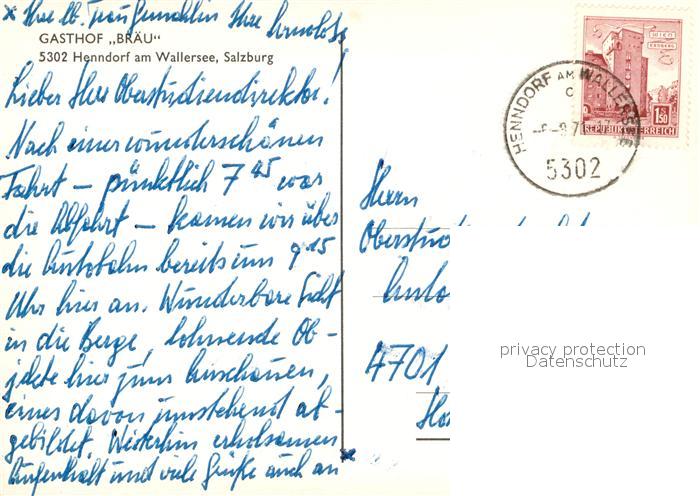 * Ihre lb. Frau Gemahlin Ihre
GASTHOF „BRÄU"
5302 Henndorf am Wallersee, Salzburg
Lieber Herr Oberstudiendirektor!
Nach einer wunderschönen
Fahrt – pünktlich 7 45 war
die Abfahrt – kamen wir über
die Autobahn bereits um 9 15
Uhr hier an. Wunderbare Sicht
in die Berge, lohnende Ob-
jekte hier zum Anschauen,
eines davon umstehend ab-
gebildet. Weiterhin erholsamen
Aufenthalt und viele Grüße auch an *
WIEN
ERDBERG
1.50
REPUBLIK ÖSTERREICH
HENNDORF AM WALLERSEE
c
5302
Herrn
4701
privacy protection
Datenschutz